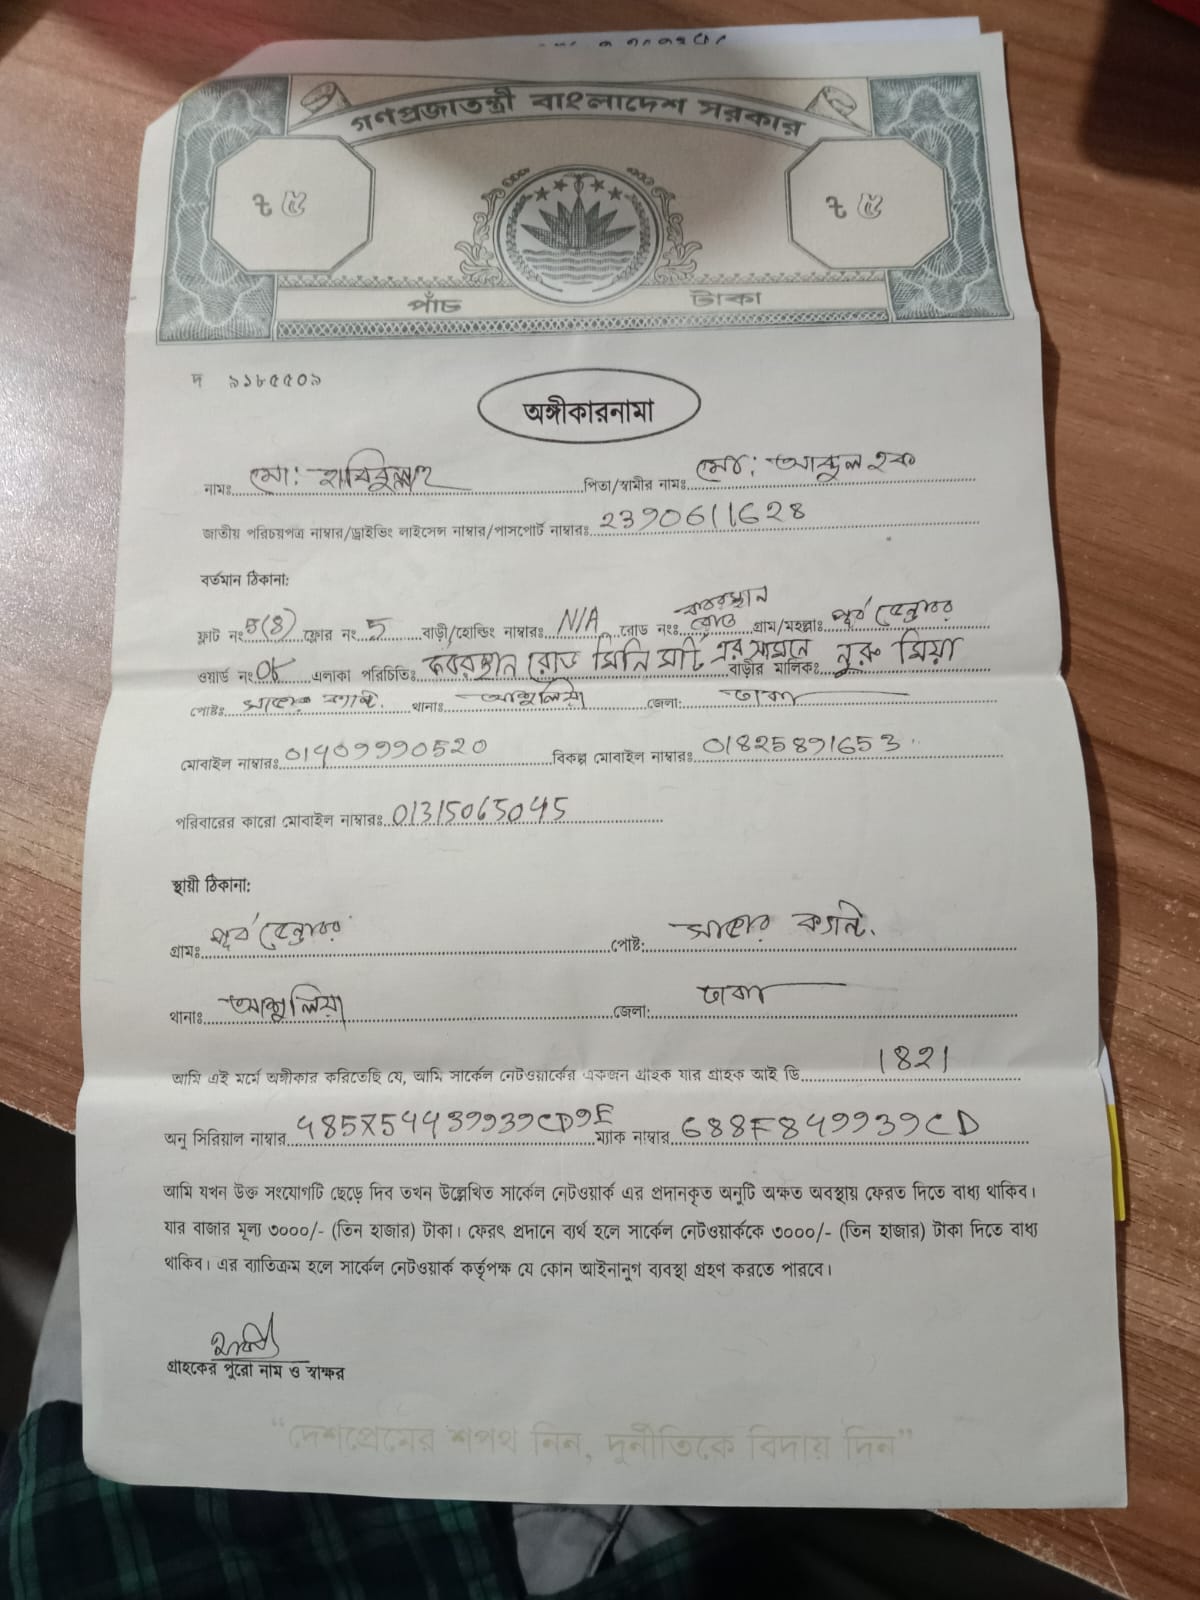 গণপ্রজাতন্ত্রী বাংলাদেশ সরকার
৳ ৫ ৳ ৫
পাঁচ টাকা
দ ৯১৮৫৫০৯
অঙ্গীকারনামা
নামঃ মো: হাবিবুল্লাহ পিতা/স্বামীর নামঃ মো: আব্দুল হক
জাতীয় পরিচয়পত্র নাম্বার/ড্রাইভিং লাইসেন্স নাম্বার/পাসপোর্ট নাম্বারঃ 2390611628
বর্তমান ঠিকানা:
ফ্লাট নং 5(8) ফ্লোর নং 5 বাড়ী/হোল্ডিং নাম্বারঃ N/A রোড নংঃ কবরস্থান রোড গ্রাম/মহল্লাঃ পূর্ব
ওয়ার্ড নং এলাকা পরিচিতিঃ কবরস্থান রোড মিনি মার্ট এর সামনে বাড়ীর মালিকঃ নুরু মিয়া
পোষ্টঃ সাভার ক্যান্ট. থানাঃ আশুলিয়া জেলা: ঢাকা
মোবাইল নাম্বারঃ বিকল্প মোবাইল নাম্বারঃ 01825891653
পরিবারের কারো মোবাইল নাম্বারঃ 01315065045
স্থায়ী ঠিকানা:
গ্রামঃ পূর্ব পোষ্ট: সাভার ক্যান্ট.
থানাঃ আশুলিয়া জেলা: ঢাকা
আমি এই মর্মে অঙ্গীকার করিতেছি যে, আমি সার্কেল নেটওয়ার্কের একজন গ্রাহক যার গ্রাহক আই ডি 1821
অনু সিরিয়াল নাম্বার ম্যাক নাম্বার
আমি যখন উক্ত সংযোগটি ছেড়ে দিব তখন উল্লেখিত সার্কেল নেটওয়ার্ক এর প্রদানকৃত অনুটি অক্ষত অবস্থায় ফেরত দিতে বাধ্য থাকিব।
যার বাজার মূল্য ৩০০০/- (তিন হাজার) টাকা। ফেরৎ প্রদানে ব্যর্থ হলে সার্কেল নেটওয়ার্ককে ৩০০০/- (তিন হাজার) টাকা দিতে বাধ্য
থাকিব। এর ব্যতিক্রম হলে সার্কেল নেটওয়ার্ক কর্তৃপক্ষ যে কোন আইনানুগ ব্যবস্থা গ্রহণ করতে পারবে।
গ্রাহকের পুরো নাম ও স্বাক্ষর
“দেশপ্রেমের শপথ নিন, দুর্নীতিকে বিদায় দিন”